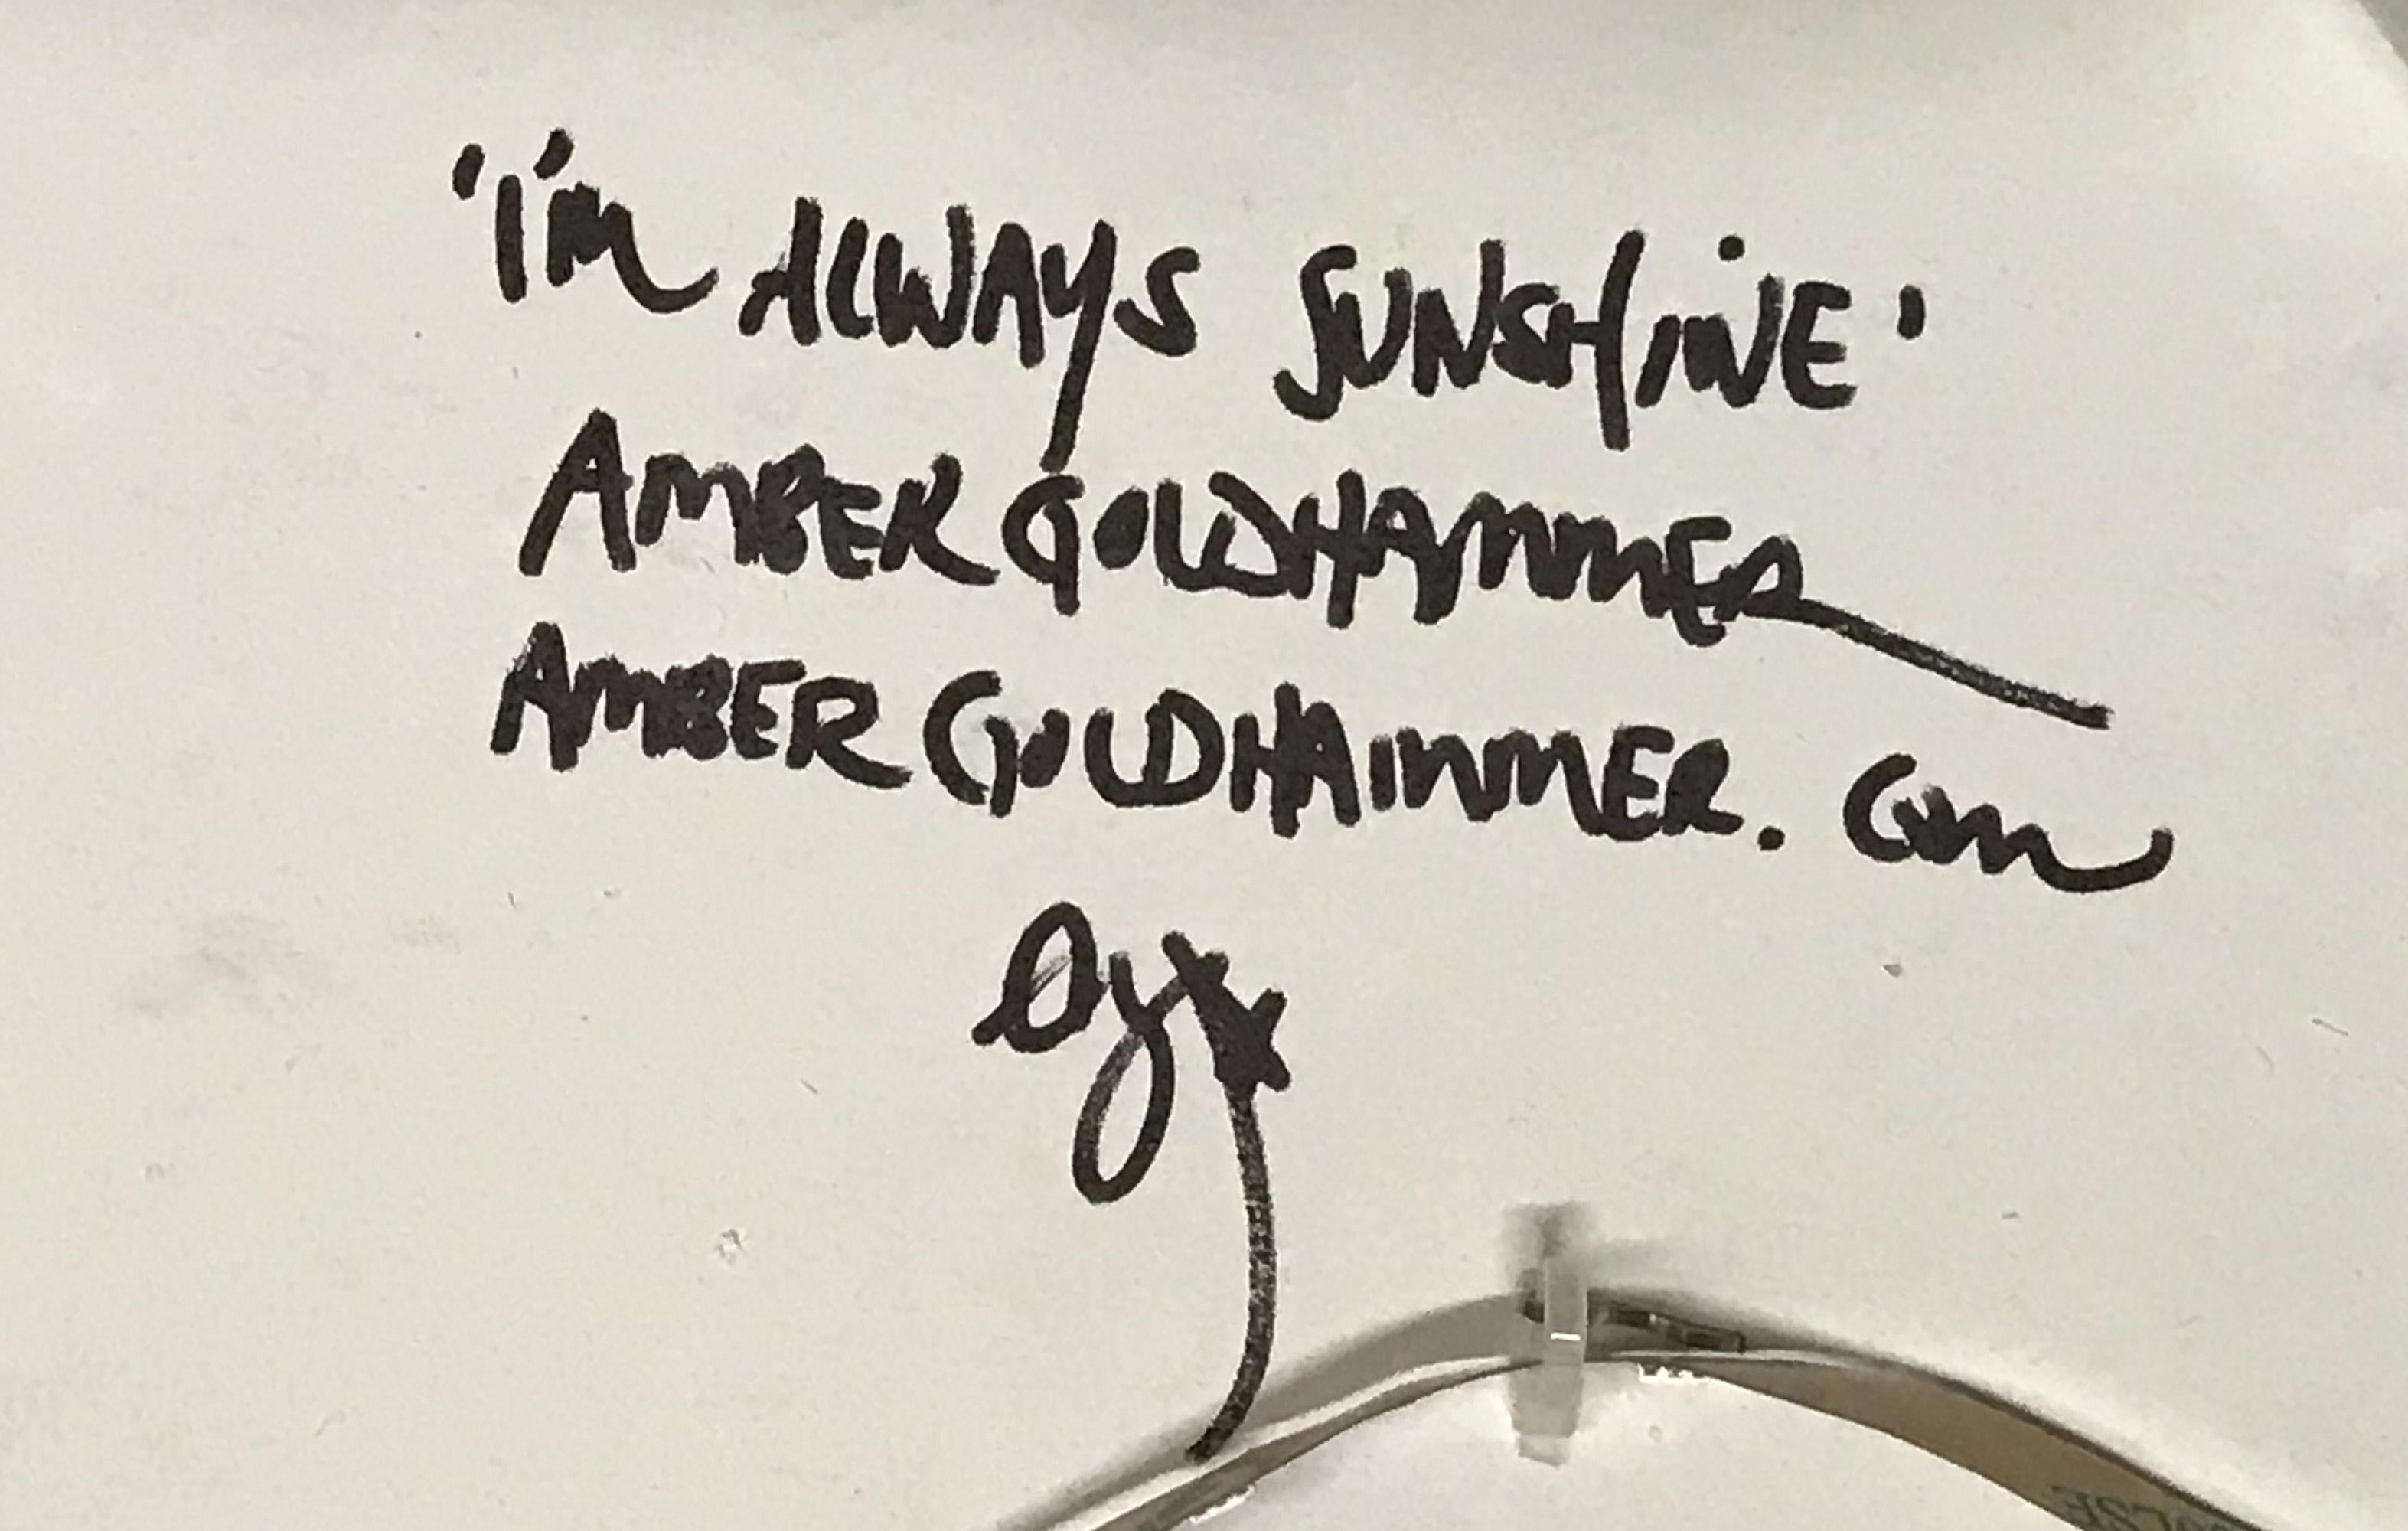 'I'm ALWAYS SUNSHINE'
AMBER GOLDHAMMER
AMBERGOLDHAMMER.COM